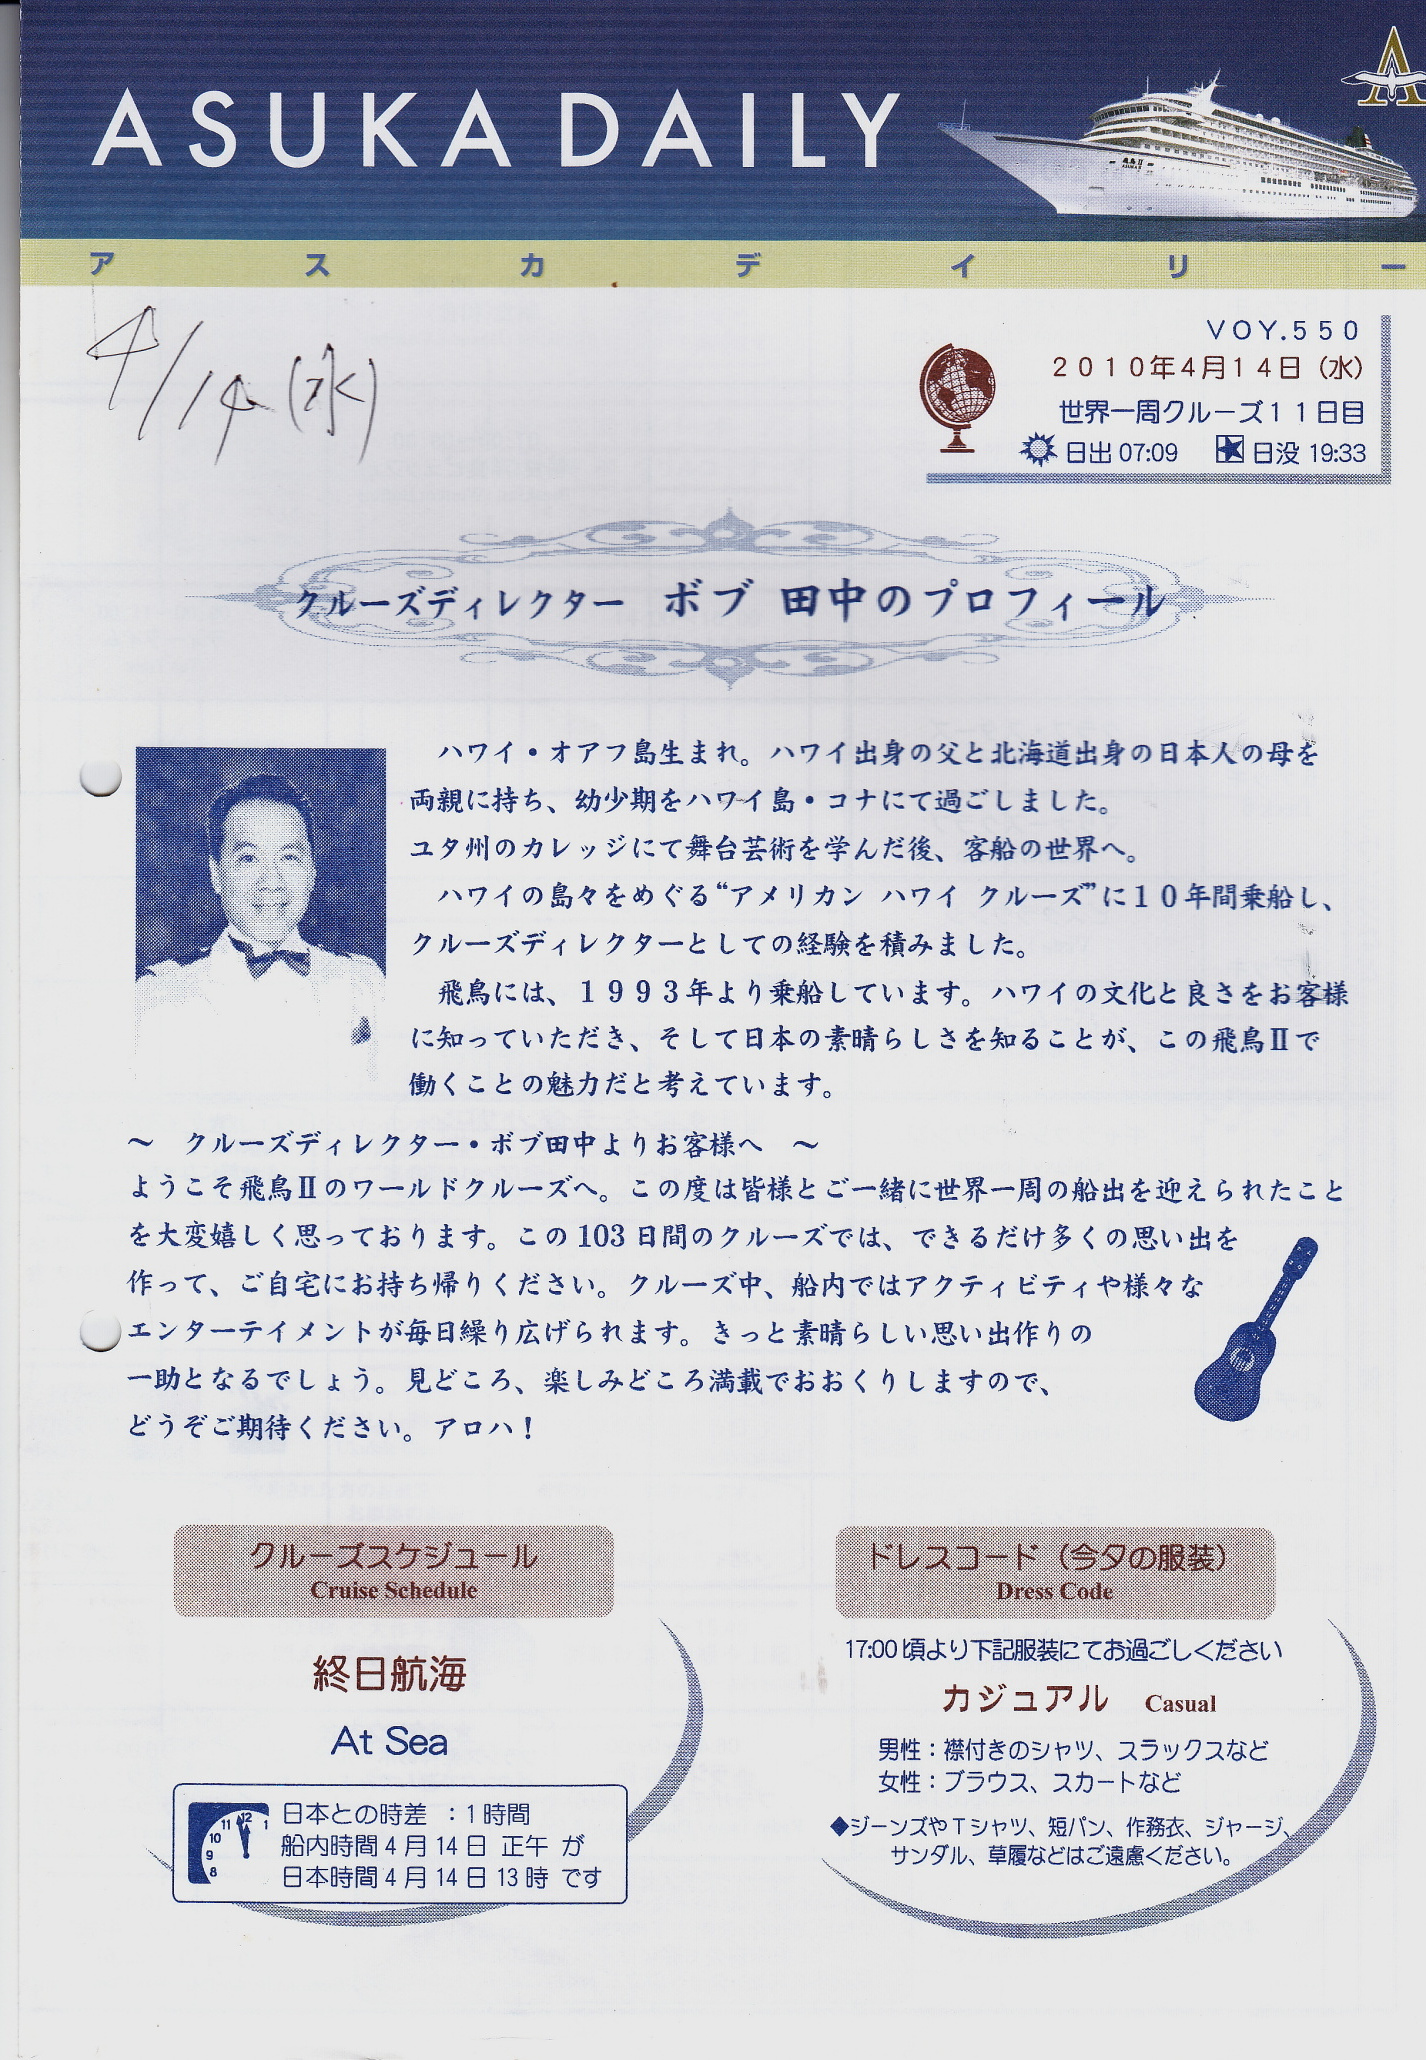 ASUKA DAILY
飛鳥Ⅱ
ASUKA Ⅱ
アスカデイリー
4/14(水)
VOY.550
2010年4月14日(水)
世界一周クルーズ11日目
日出 07:09 日没 19:33
クルーズディレクター ボブ 田中のプロフィール
ハワイ・オアフ島生まれ。ハワイ出身の父と北海道出身の日本人の母を
両親に持ち、幼少期をハワイ島・コナにて過ごしました。
ユタ州のカレッジにて舞台芸術を学んだ後、客船の世界へ。
ハワイの島々をめぐる“アメリカン ハワイ クルーズ”に10年間乗船し、
クルーズディレクターとしての経験を積みました。
飛鳥には、1993年より乗船しています。ハワイの文化と良さをお客様
に知っていただき、そして日本の素晴らしさを知ることが、この飛鳥Ⅱで
働くことの魅力だと考えています。
～ クルーズディレクター・ボブ田中よりお客様へ ～
ようこそ飛鳥Ⅱのワールドクルーズへ。この度は皆様とご一緒に世界一周の船出を迎えられたこと
を大変嬉しく思っております。この 103 日間のクルーズでは、できるだけ多くの思い出を
作って、ご自宅にお持ち帰りください。クルーズ中、船内ではアクティビティや様々な
エンターテイメントが毎日繰り広げられます。きっと素晴らしい思い出作りの
一助となるでしょう。見どころ、楽しみどころ満載でおおくりしますので、
どうぞご期待ください。アロハ！
クルーズスケジュール
Cruise Schedule
終日航海
At Sea
日本との時差 ：1時間
船内時間 4 月 14 日 正午 が
日本時間 4 月 14 日 13 時 です
11 12 1
10
9
8
ドレスコード（今夕の服装）
Dress Code
17:00 頃より下記服装にてお過ごしください
カジュアル Casual
男性：襟付きのシャツ、スラックスなど
女性：ブラウス、スカートなど
◆ジーンズやTシャツ、短パン、作務衣、ジャージ、
サンダル、草履などはご遠慮ください。